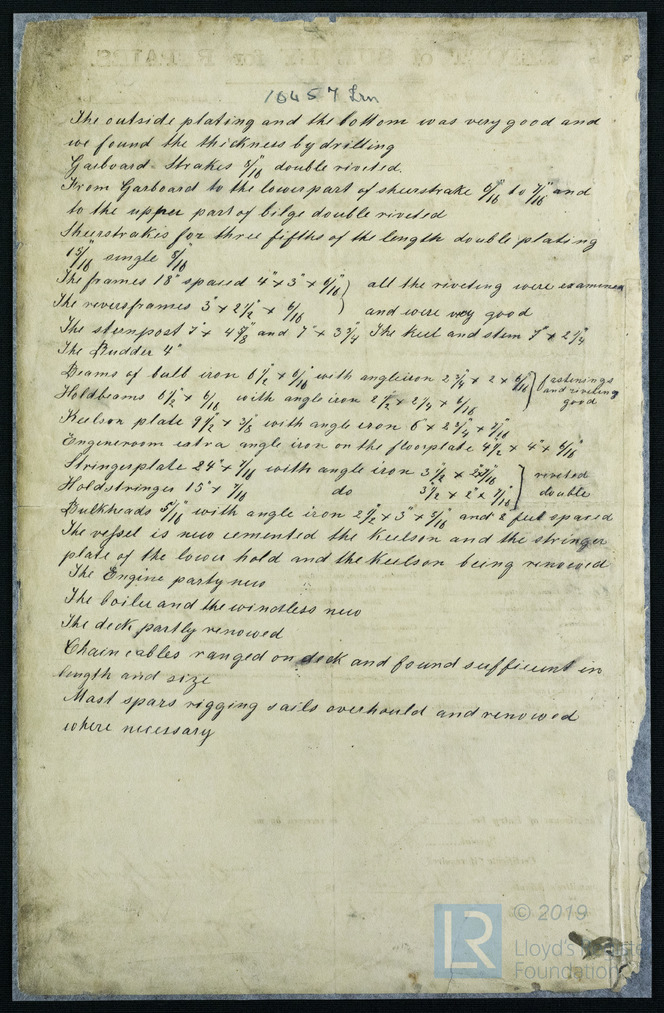 16457 Irn
The outside plating and the bottom was very good and
we found the thickness by drilling
Garboard Strakes 8/16" double riveted.
From Garboard to the lowerpart of sheerstrake 6/16" to 7/16" and
to the upper part of bilge double riveted
Sheerstrakes for three fifths of the length double plating
15/16" single 8/16"
The frames 18" spaced 4" x 3" x 6/16" ) all the riveting were examined
The reversframes 3" x 2 1/2" x 6/16 ) and were very good
The sternpost 7" x 4 7/8" and 7" x 3 3/4 The keel and stem 7" x 2 1/4"
The Rudder 4"
Beams of bulb iron 6 1/2" x 6/16" with angleiron 2 3/4" x 2 x 6/16" } fastenings and riveting good
Holdbeams 6 1/2" x 6/16 with angle iron 2 1/2" x 2 1/4 x 6/16"
Keelson plate 9 1/2" x 3/8 with angle iron 6 x 2 3/4" x 7/16"
Engineroom extra angle iron on the floorplate 4 1/2" x 4" x 6/16"
Stringesplate 24" x 7/16" with angle iron 3 1/2" x 7/16" } riveted
Holdstringes 15" x 7/16" do 3 1/2" x 2" x 7/16" } double
Bulkheads 5/16" with angle iron 2 1/2" x 3" x 5/16" and 2 feet spaced
The vessel is new cemented the Keelson and the stringer
plate of the lower hold and the Keelson being renowed
The Engine party new
The boiler and the windless new
The deck partly renowed
Chain cables ranged on deck and found sufficient in
length and size
Mast spars rigging sails overhould and renowed
where necessary
LR © 2019
Lloyd's Register
Foundation